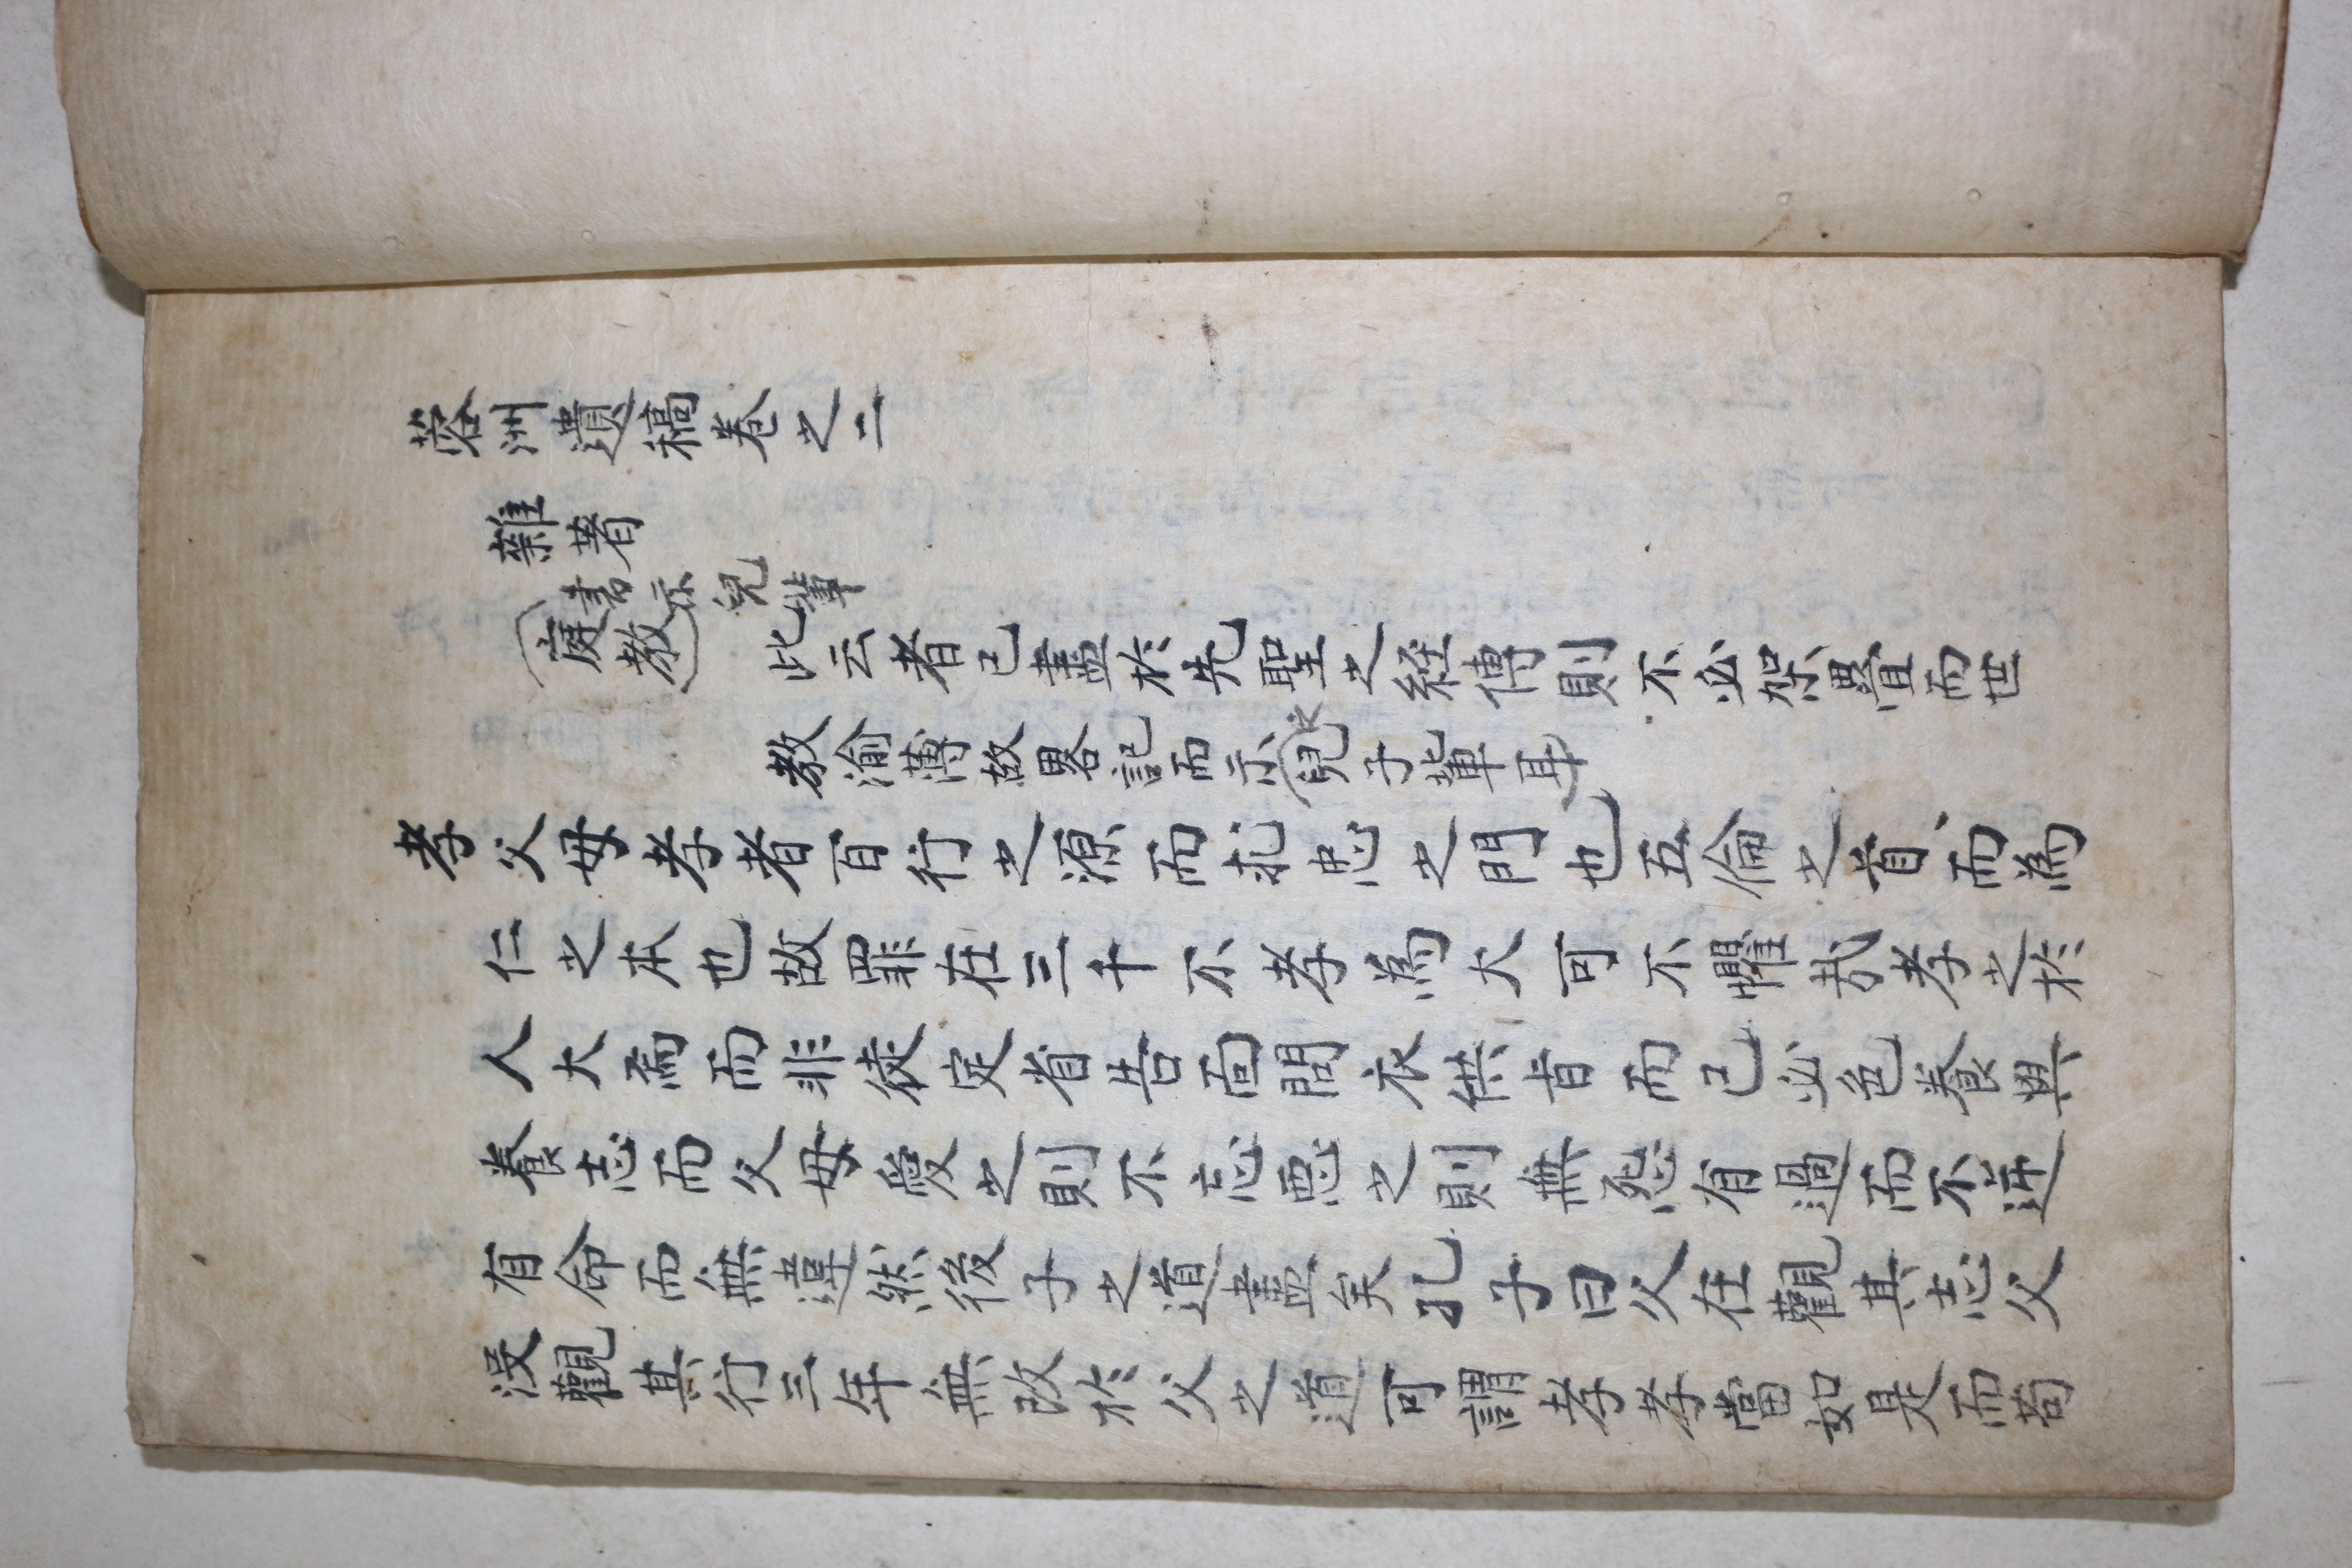 蓉洲遺稿卷之二
雜著
書示兒輩
(庭教)
此云者已盡於先聖之經傳則不必架疊而世
教渝薄故畧記而示(兒子輩耳)
之
孝父母孝者百行之源而求忠之門也五倫之首而為
仁之本也故罪在三千不孝為大可不懼哉孝之於
人大焉而非徒定省告面問衣供旨而已必色養與
養志而父母愛之則不忘惡之則無怨有過而不逆
有命而無違然後子之道盡矣孔子曰父在觀其志父
沒觀其行三年無改於父之道可謂孝孝當如是而苟